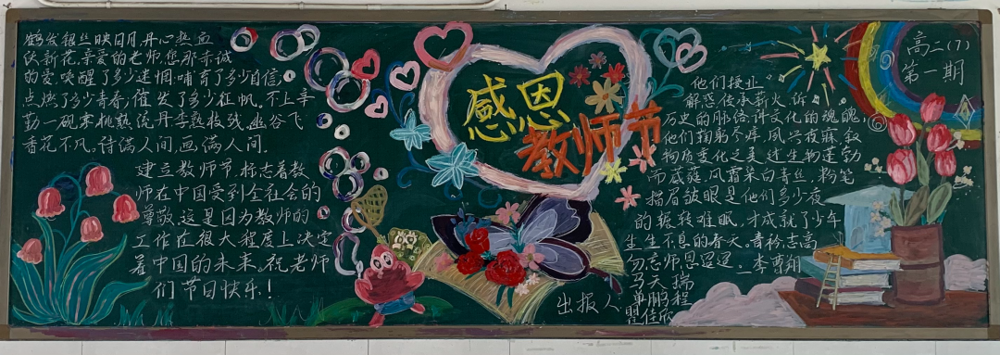 鹤发银丝映日月,丹心热血
沃新花,亲爱的老师,您那赤诚
的爱,唤醒了多少迷惘,哺育了多少自信,
点燃了多少青春,催发了多少征帆。不上辛
勤一砚寒,桃熟流丹李熟枝残,幽谷飞
香花不风,诗满人间,画满人间。
建立教师节,标志着教
师在中国受到全社会的
尊敬,这是因为教师的
工作在很大程度上决定
着中国的未来,祝老师
们节日快乐!
感恩
教师节
高二(7)
第一期
他们授业
解惑传承薪火,诉
历史的脉络,讲文化的魂魄,
他们鞠躬尽瘁,夙兴夜寐,叙
物质变化之美,述生物运动
而葳蕤,风霜染白青丝,粉笔
描眉皱眼是他们多少夜
的辗转难眠,才成就了少年
生生不息的春天,青衿志高
勿忘师恩迢迢
出报人:
李曹翔
马天瑞
单鹏程
翟佳欣